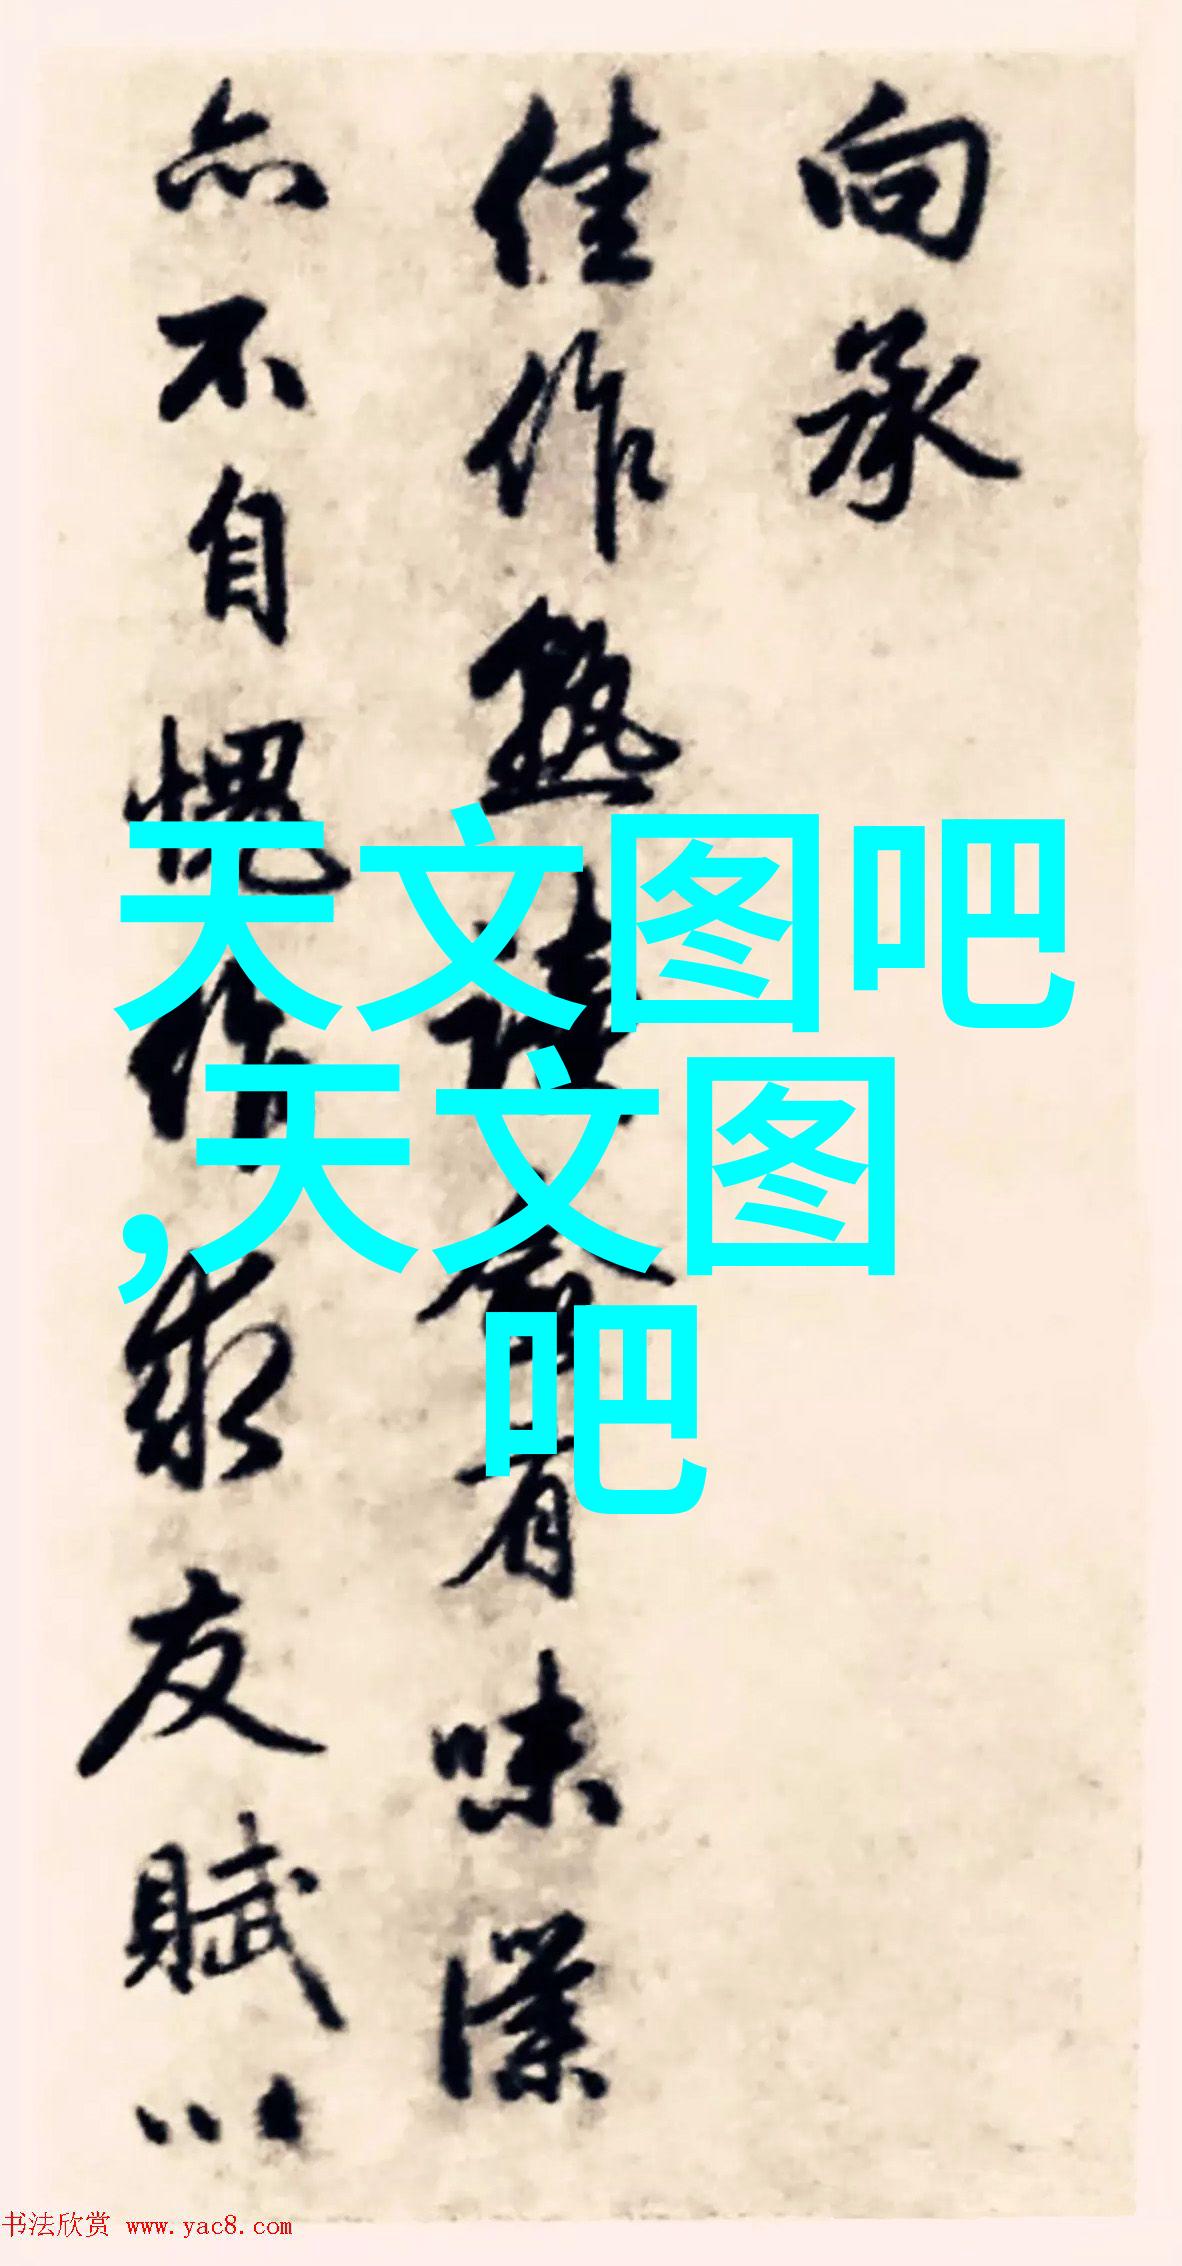 向承
佳作熟读愈有味深
亦不自愧作求友赋以
天文图吧
,天文图
吧
书法欣赏 www.yac8.com